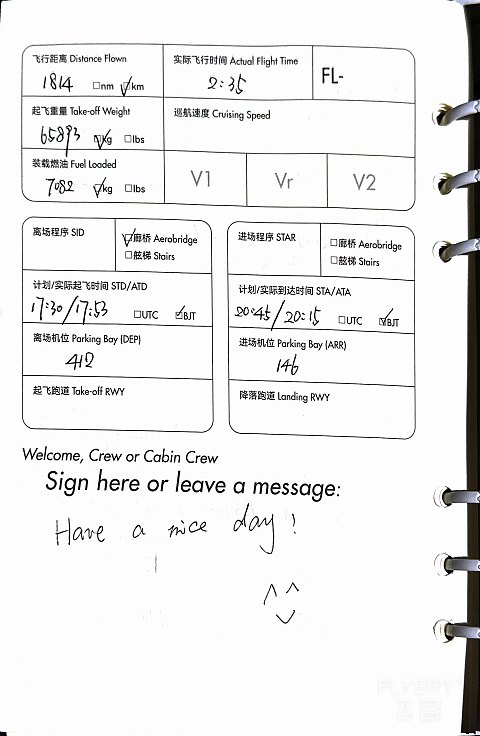 飞行距离 Distance Flown
1814 □nm ☑km
实际飞行时间 Actual Flight Time
2:35
FL-
起飞重量 Take-off Weight
65893 ☑Kg □lbs
巡航速度 Cruising Speed
装载燃油 Fuel Loaded
7082 ☑kg □lbs
V1 Vr V2
离场程序 SID
☑廊桥 Aerobridge
□舷梯 Stairs
计划/实际起飞时间 STD/ATD
17:30/17:53
□UTC ☑BJT
离场机位 Parking Bay (DEP)
412
起飞跑道 Take-off RWY
进场程序 STAR
□廊桥 Aerobridge
□舷梯 Stairs
计划/实际到达时间 STA/ATA
20:45/20:15 □UTC ☑BJT
进场机位 Parking Bay (ARR)
146
降落跑道 Landing RWY
Welcome, Crew or Cabin Crew
Sign here or leave a message:
Have a nice day!
FLYERT
飞客